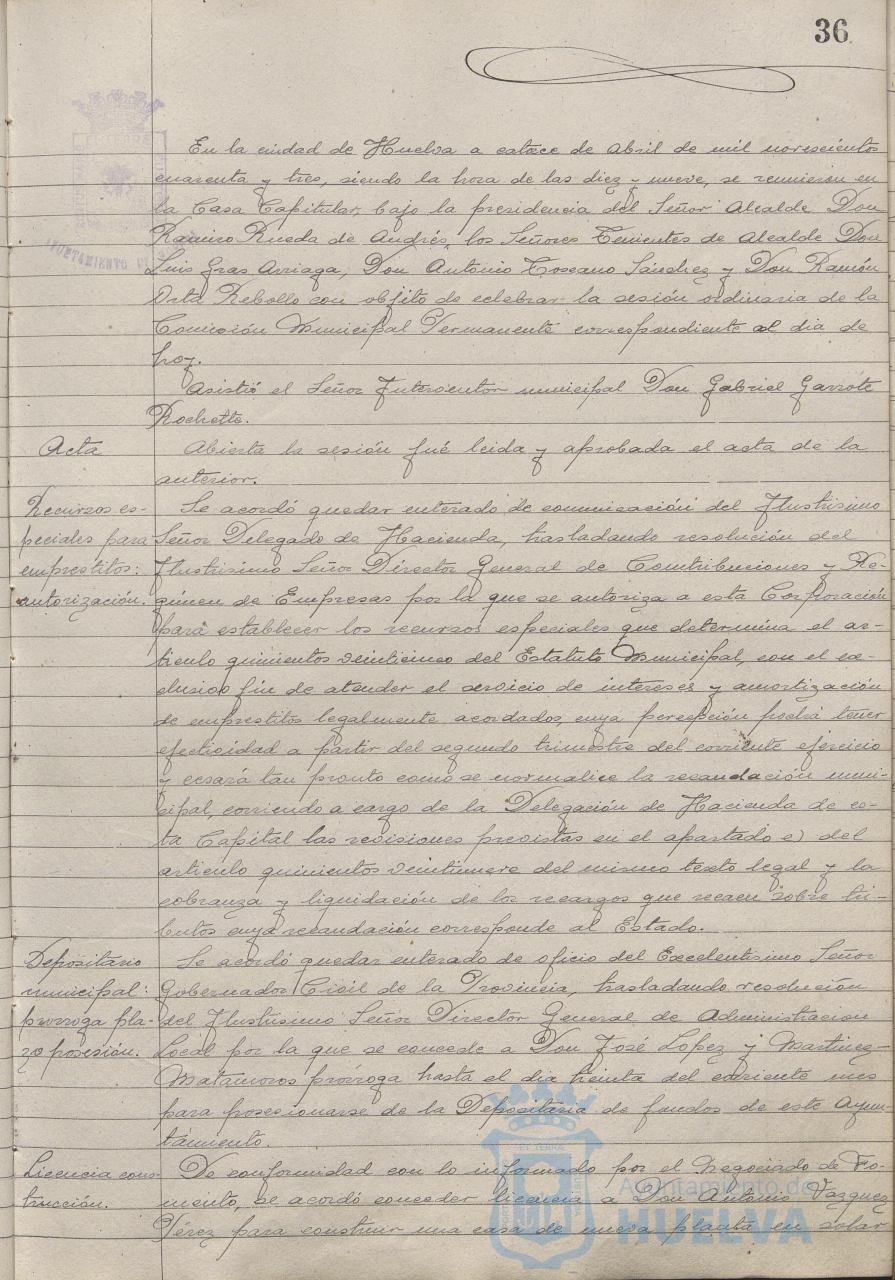 36
En la ciudad de Huelva a catorce de Abril de mil novescientos
cuarenta y tres, siendo la hora de las diez y nueve, se reunieron en
la Casa Capitular, bajo la presidencia del Señor Alcalde Don
Ramiro Rueda de Andrés, los Señores Tenientes de Alcalde Don
Luis Gras Arriaga, Don Antonio Toscano Sánchez y Don Ramón
Orta Rebollo con objeto de celebrar la sesión ordinaria de la
Comisión Municipal Permanente correspondiente al dia de
hoy.
Asistió el Señor Interventor municipal Don Gabriel Garrote
Rochette.
Acta
Abierta la sesión fué leida y aprobada el acta de la
anterior.
Recursos es-
peciales para
emprestitos:
autorización.
Se acordó quedar enterado de comunicación del Ilustrisimo
Señor Delegado de Hacienda, trasladando resolución del
Ilustrisimo Señor Director General de Contribuciones y Ré-
gimen de Empresas por la que se autoriza a esta Corporación
para establecer los recursos especiales que determina el ar-
ticulo quinientos veinticinco del Estatuto Municipal, con el ex-
clusivo fin de atender el servicio de intereses y amortización
de emprestitos legalmente acordados, cuya percepción podrá tener
efectividad a partir del segundo trimestre del corriente ejercicio
y cesará tan pronto como se normalice la recaudación muni-
cipal, corriendo a cargo de la Delegación de Hacienda de es-
ta Capital las revisiones previstas en el apartado e) del
articulo quinientos veintinueve del mismo texto legal y la
cobranza y liquidación de los recargos que recaen sobre tri-
butos cuya recaudación corresponde al Estado.
Depositario
municipal:
prórroga pla-
zo posesión.
Se acordó quedar enterado de oficio del Excelentisimo Señor
Gobernador Civil de la Provincia, trasladando resolución
del Ilustrisimo Señor Director General de Administracion
Local por la que se concede a Don José Lopez y Martinez-
Matamoros prórroga hasta el dia treinta del corriente mes
para posesionarse de la Depositaria de fondos de este Ayun-
tamiento.
Licencia cons-
trucción.
De conformidad con lo informado por el Negociado de Fo-
mento, se acordó conceder licencia a Don Antonio Vazquez
Pérez para construir una casa de nueva planta en solar
Ayuntamiento de
HUELVA